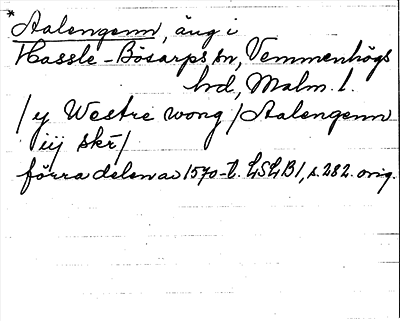 * Aalengenn, äng i
Hassle-Bösarps sn, Vemmenhögs
hd, Malm. l.
/ y Westre wong / Aalengenn
iij skr̄ /
förra delen av 1570-t. LSLB 1, s. 282. orig.